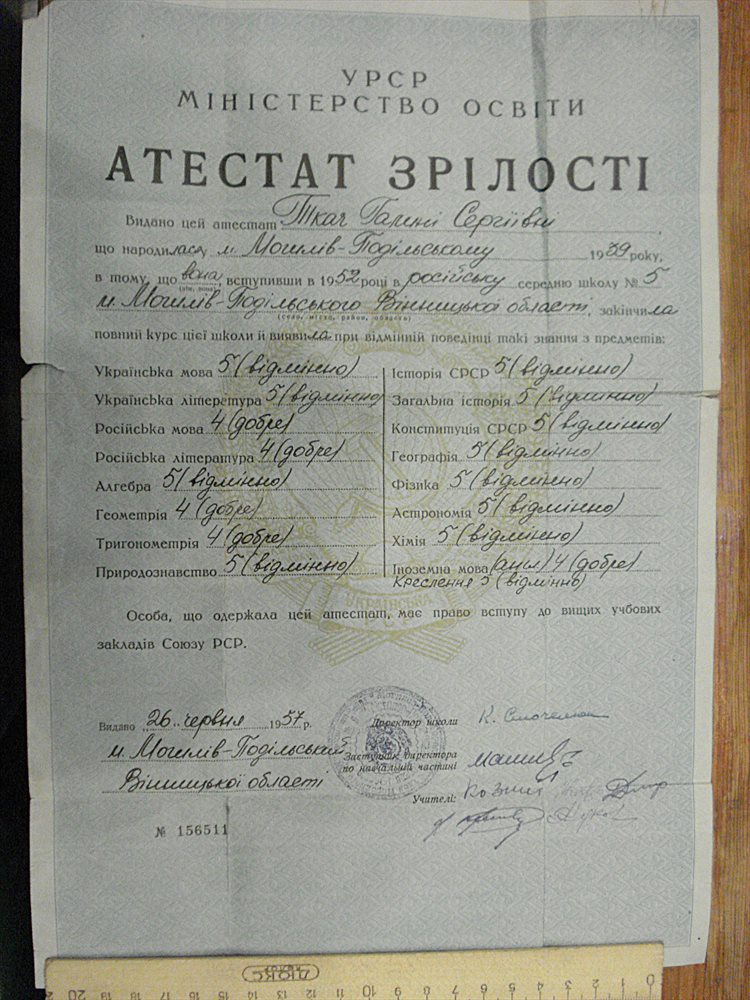 УРСР
МІНІСТЕРСТВО ОСВІТИ
АТЕСТАТ ЗРІЛОСТІ
Видано цей атестат Ткач Галині Сергіївні
що народилася м. Могилів-Подільському 1939 року,
в тому, що вона, вступивши в 1952 році в російську середню школу № 5
(він, вона)
м. Могилів-Подільського Вінницької області, закінчила
(село, місто, район, область)
повний курс цієї школи й виявила при відмінній поведінці такі знання з предметів:
Українська мова 5 (відмінно)
Українська література 5 (відмінно)
Російська мова 4 (добре)
Російська література 4 (добре)
Алгебра 5 (відмінно)
Геометрія 4 (добре)
Тригонометрія 4 (добре)
Природознавство 5 (відмінно)
Історія СРСР 5 (відмінно)
Загальна історія 5 (відмінно)
Конституція СРСР 5 (відмінно)
Географія 5 (відмінно)
Фізика 5 (відмінно)
Астрономія 5 (відмінно)
Хімія 5 (відмінно)
Іноземна мова (англ) 4 (добре)
Креслення 5 (відмінно)
Особа, що одержала цей атестат, має право вступу до вищих учбових
закладів Союзу РСР.
Видано 26 червня 1957 р.
м. Могилів-Подільський
Вінницької області
№ 156511
Директор школи
Заступник директора
по навчальній частині
Учителі:
ДЮКС
20 19 18 17 16 15 14 13 12 11 10 9 8 7 6 5 4 3 2 1 0